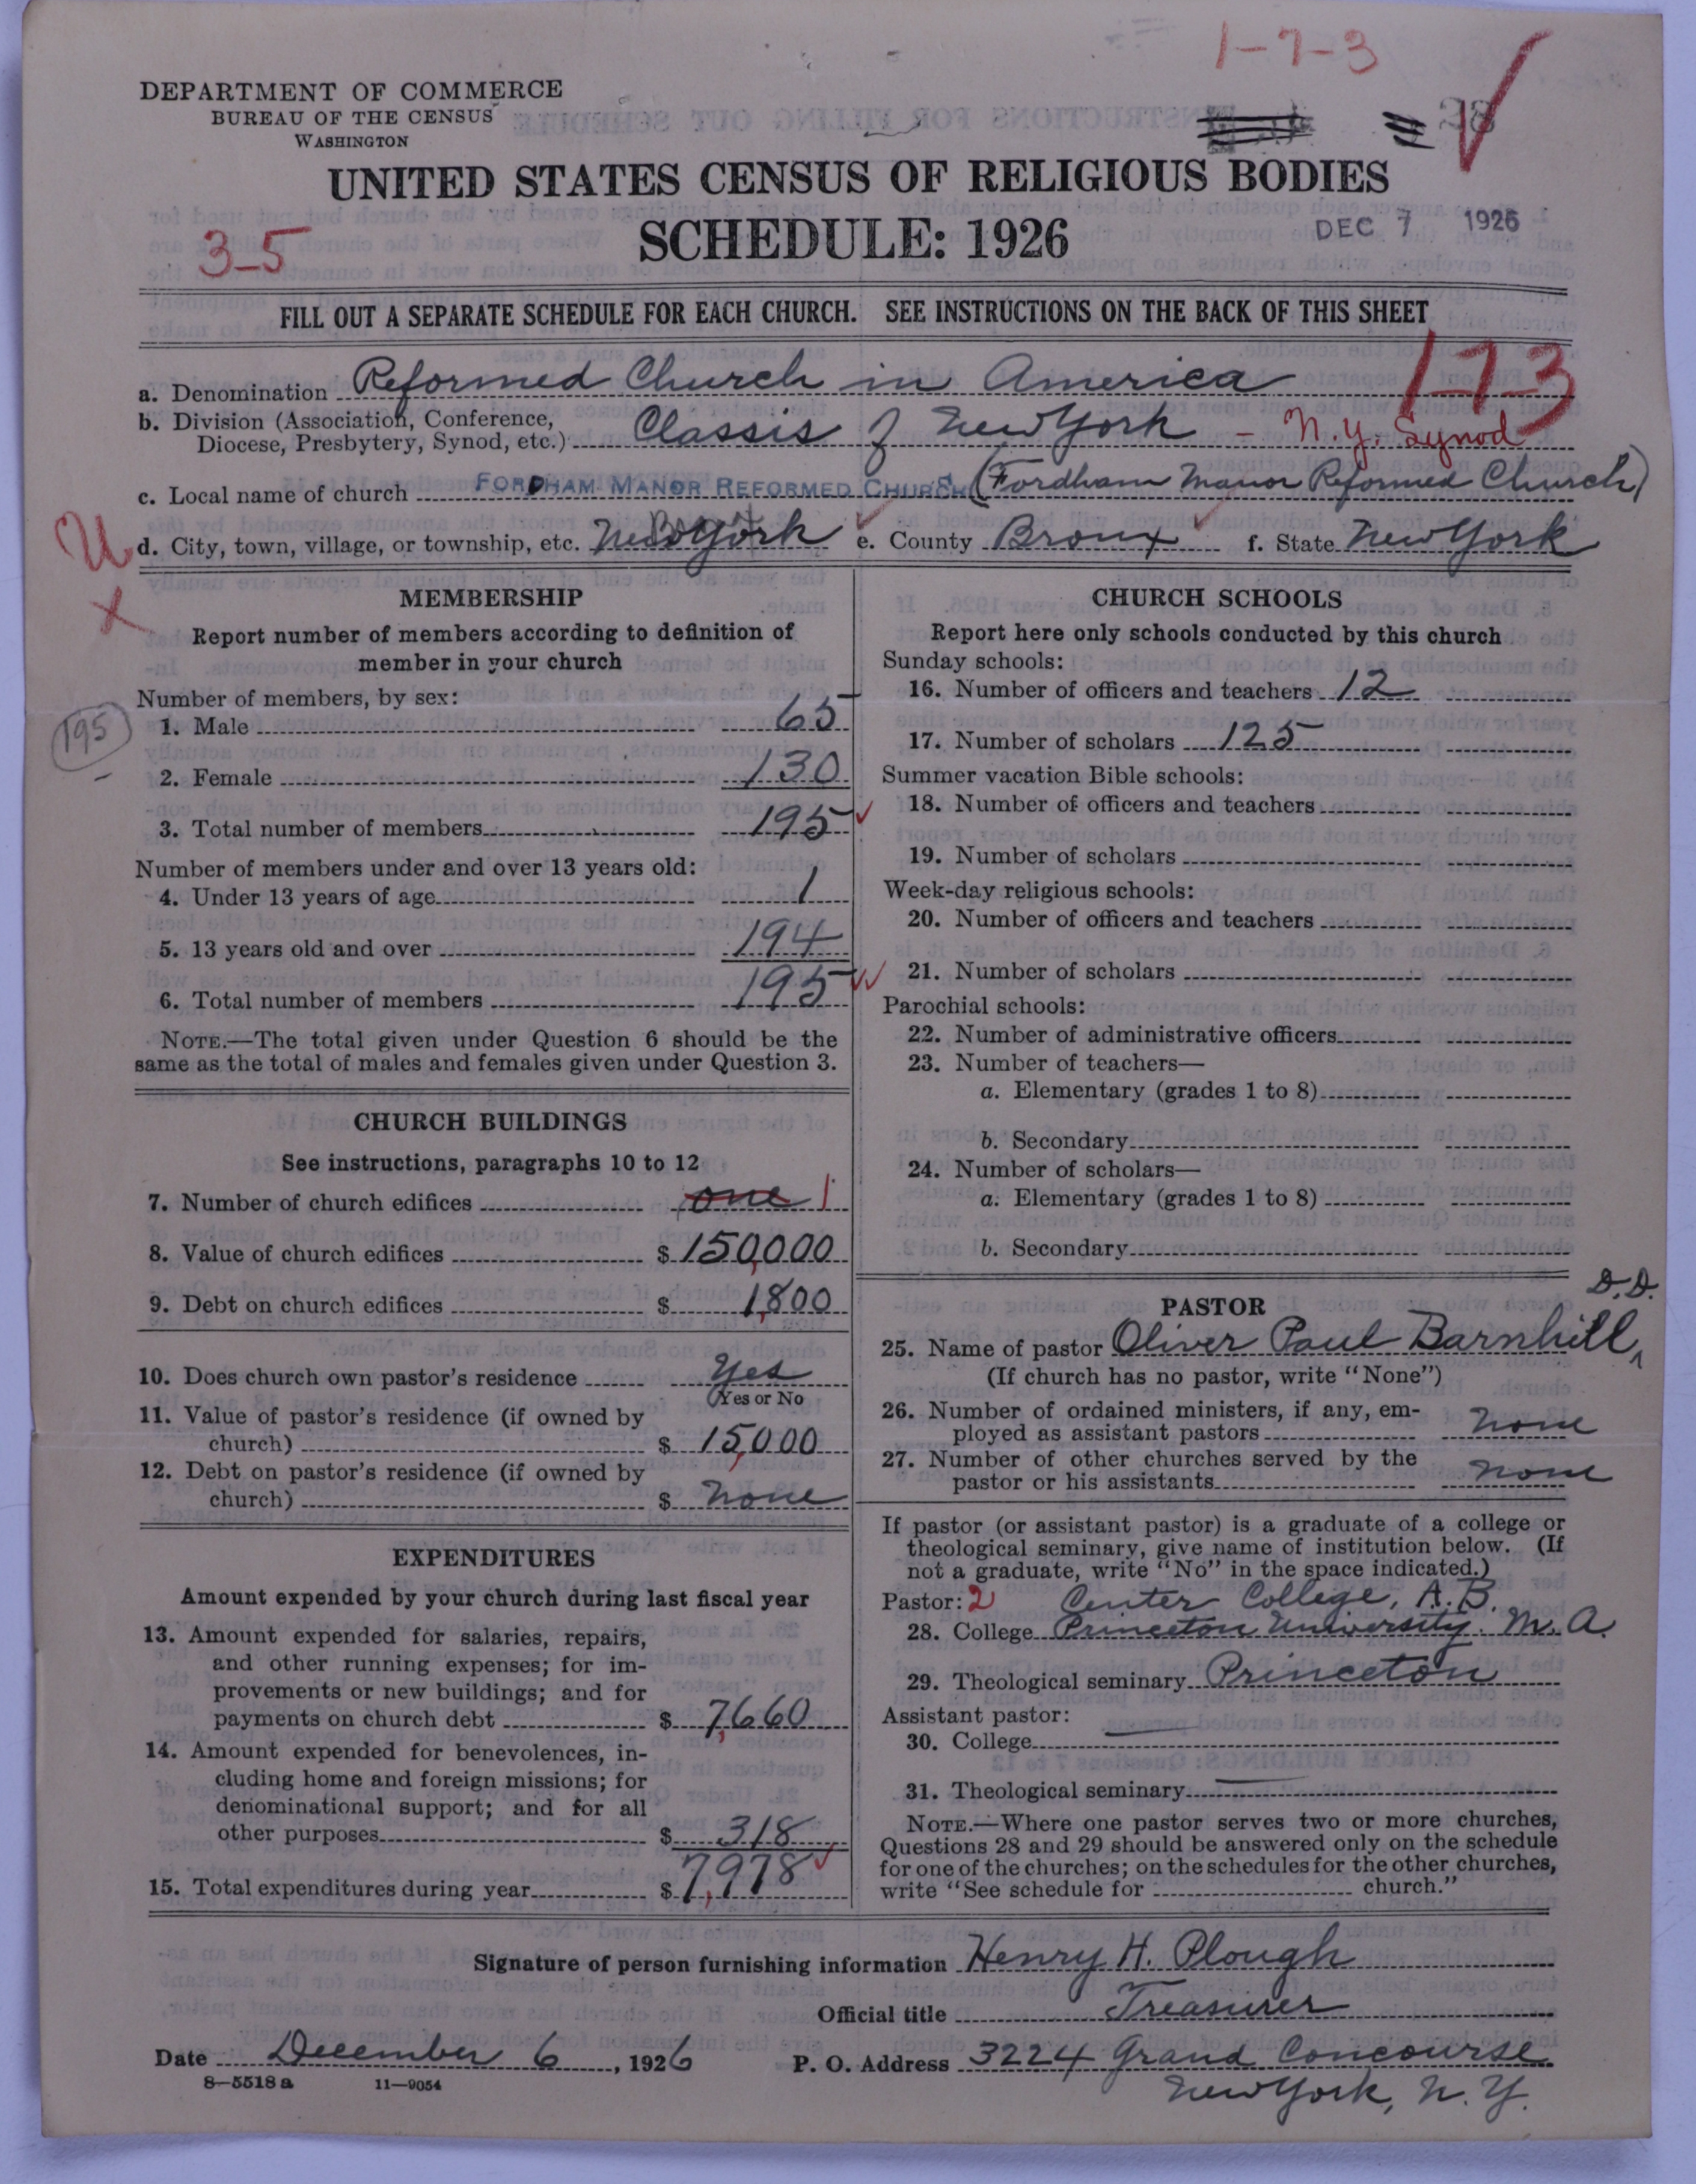 1-7-3
DEPARTMENT OF COMMERCE
BUREAU OF THE CENSUS
WASHINGTON
UNITED STATES CENSUS OF RELIGIOUS BODIES
SCHEDULE: 1926
DEC 7 1926
3-5
FILL OUT A SEPARATE SCHEDULE FOR EACH CHURCH. SEE INSTRUCTIONS ON THE BACK OF THIS SHEET
1-7-3
a. Denomination Reformed Church in America
b. Division (Association, Conference,
Diocese, Presbytery, Synod, etc.) Classis of New York - N.Y. Synod
c. Local name of church FORDHAM MANOR REFORMED CHURCH (Fordham Manor Reformed Church)
U d. City, town, village, or township, etc. New York e. County Bronx f. State New York
X
MEMBERSHIP
Report number of members according to definition of
member in your church
Number of members, by sex:
195
1. Male 65
2. Female 130
3. Total number of members 195
Number of members under and over 13 years old:
4. Under 13 years of age 1
5. 13 years old and over 194
6. Total number of members 195
NOTE.—The total given under Question 6 should be the
same as the total of males and females given under Question 3.
CHURCH BUILDINGS
See instructions, paragraphs 10 to 12
7. Number of church edifices one 1
8. Value of church edifices $ 150,000
9. Debt on church edifices $ 1,800
10. Does church own pastor's residence Yes
Yes or No
11. Value of pastor's residence (if owned by
church) $ 15,000
12. Debt on pastor's residence (if owned by
church) $ none
EXPENDITURES
Amount expended by your church during last fiscal year
13. Amount expended for salaries, repairs,
and other running expenses; for im-
provements or new buildings; and for
payments on church debt $ 7,660
14. Amount expended for benevolences, in-
cluding home and foreign missions; for
denominational support; and for all
other purposes $ 318
15. Total expenditures during year $ 7,978
CHURCH SCHOOLS
Report here only schools conducted by this church
Sunday schools:
16. Number of officers and teachers 12
17. Number of scholars 125
Summer vacation Bible schools:
18. Number of officers and teachers
19. Number of scholars
Week-day religious schools:
20. Number of officers and teachers
21. Number of scholars
Parochial schools:
22. Number of administrative officers
23. Number of teachers—
a. Elementary (grades 1 to 8)
b. Secondary
24. Number of scholars—
a. Elementary (grades 1 to 8)
b. Secondary
PASTOR
25. Name of pastor Oliver Paul Barnhill, D.D.
(If church has no pastor, write "None")
26. Number of ordained ministers, if any, em-
ployed as assistant pastors none
27. Number of other churches served by the
pastor or his assistants none
If pastor (or assistant pastor) is a graduate of a college or
theological seminary, give name of institution below. (If
not a graduate, write "No" in the space indicated.)
Pastor: 2 Center College, A.B.
28. College Princeton University. M.A.
29. Theological seminary Princeton
Assistant pastor:
30. College
31. Theological seminary
NOTE.—Where one pastor serves two or more churches,
Questions 28 and 29 should be answered only on the schedule
for one of the churches; on the schedules for the other churches,
write "See schedule for church."
Signature of person furnishing information Henry H. Plough
Official title Treasurer
Date December 6, 1926 P. O. Address 3224 Grand Concourse
New York, N.Y.
8-5518 a 11-9054